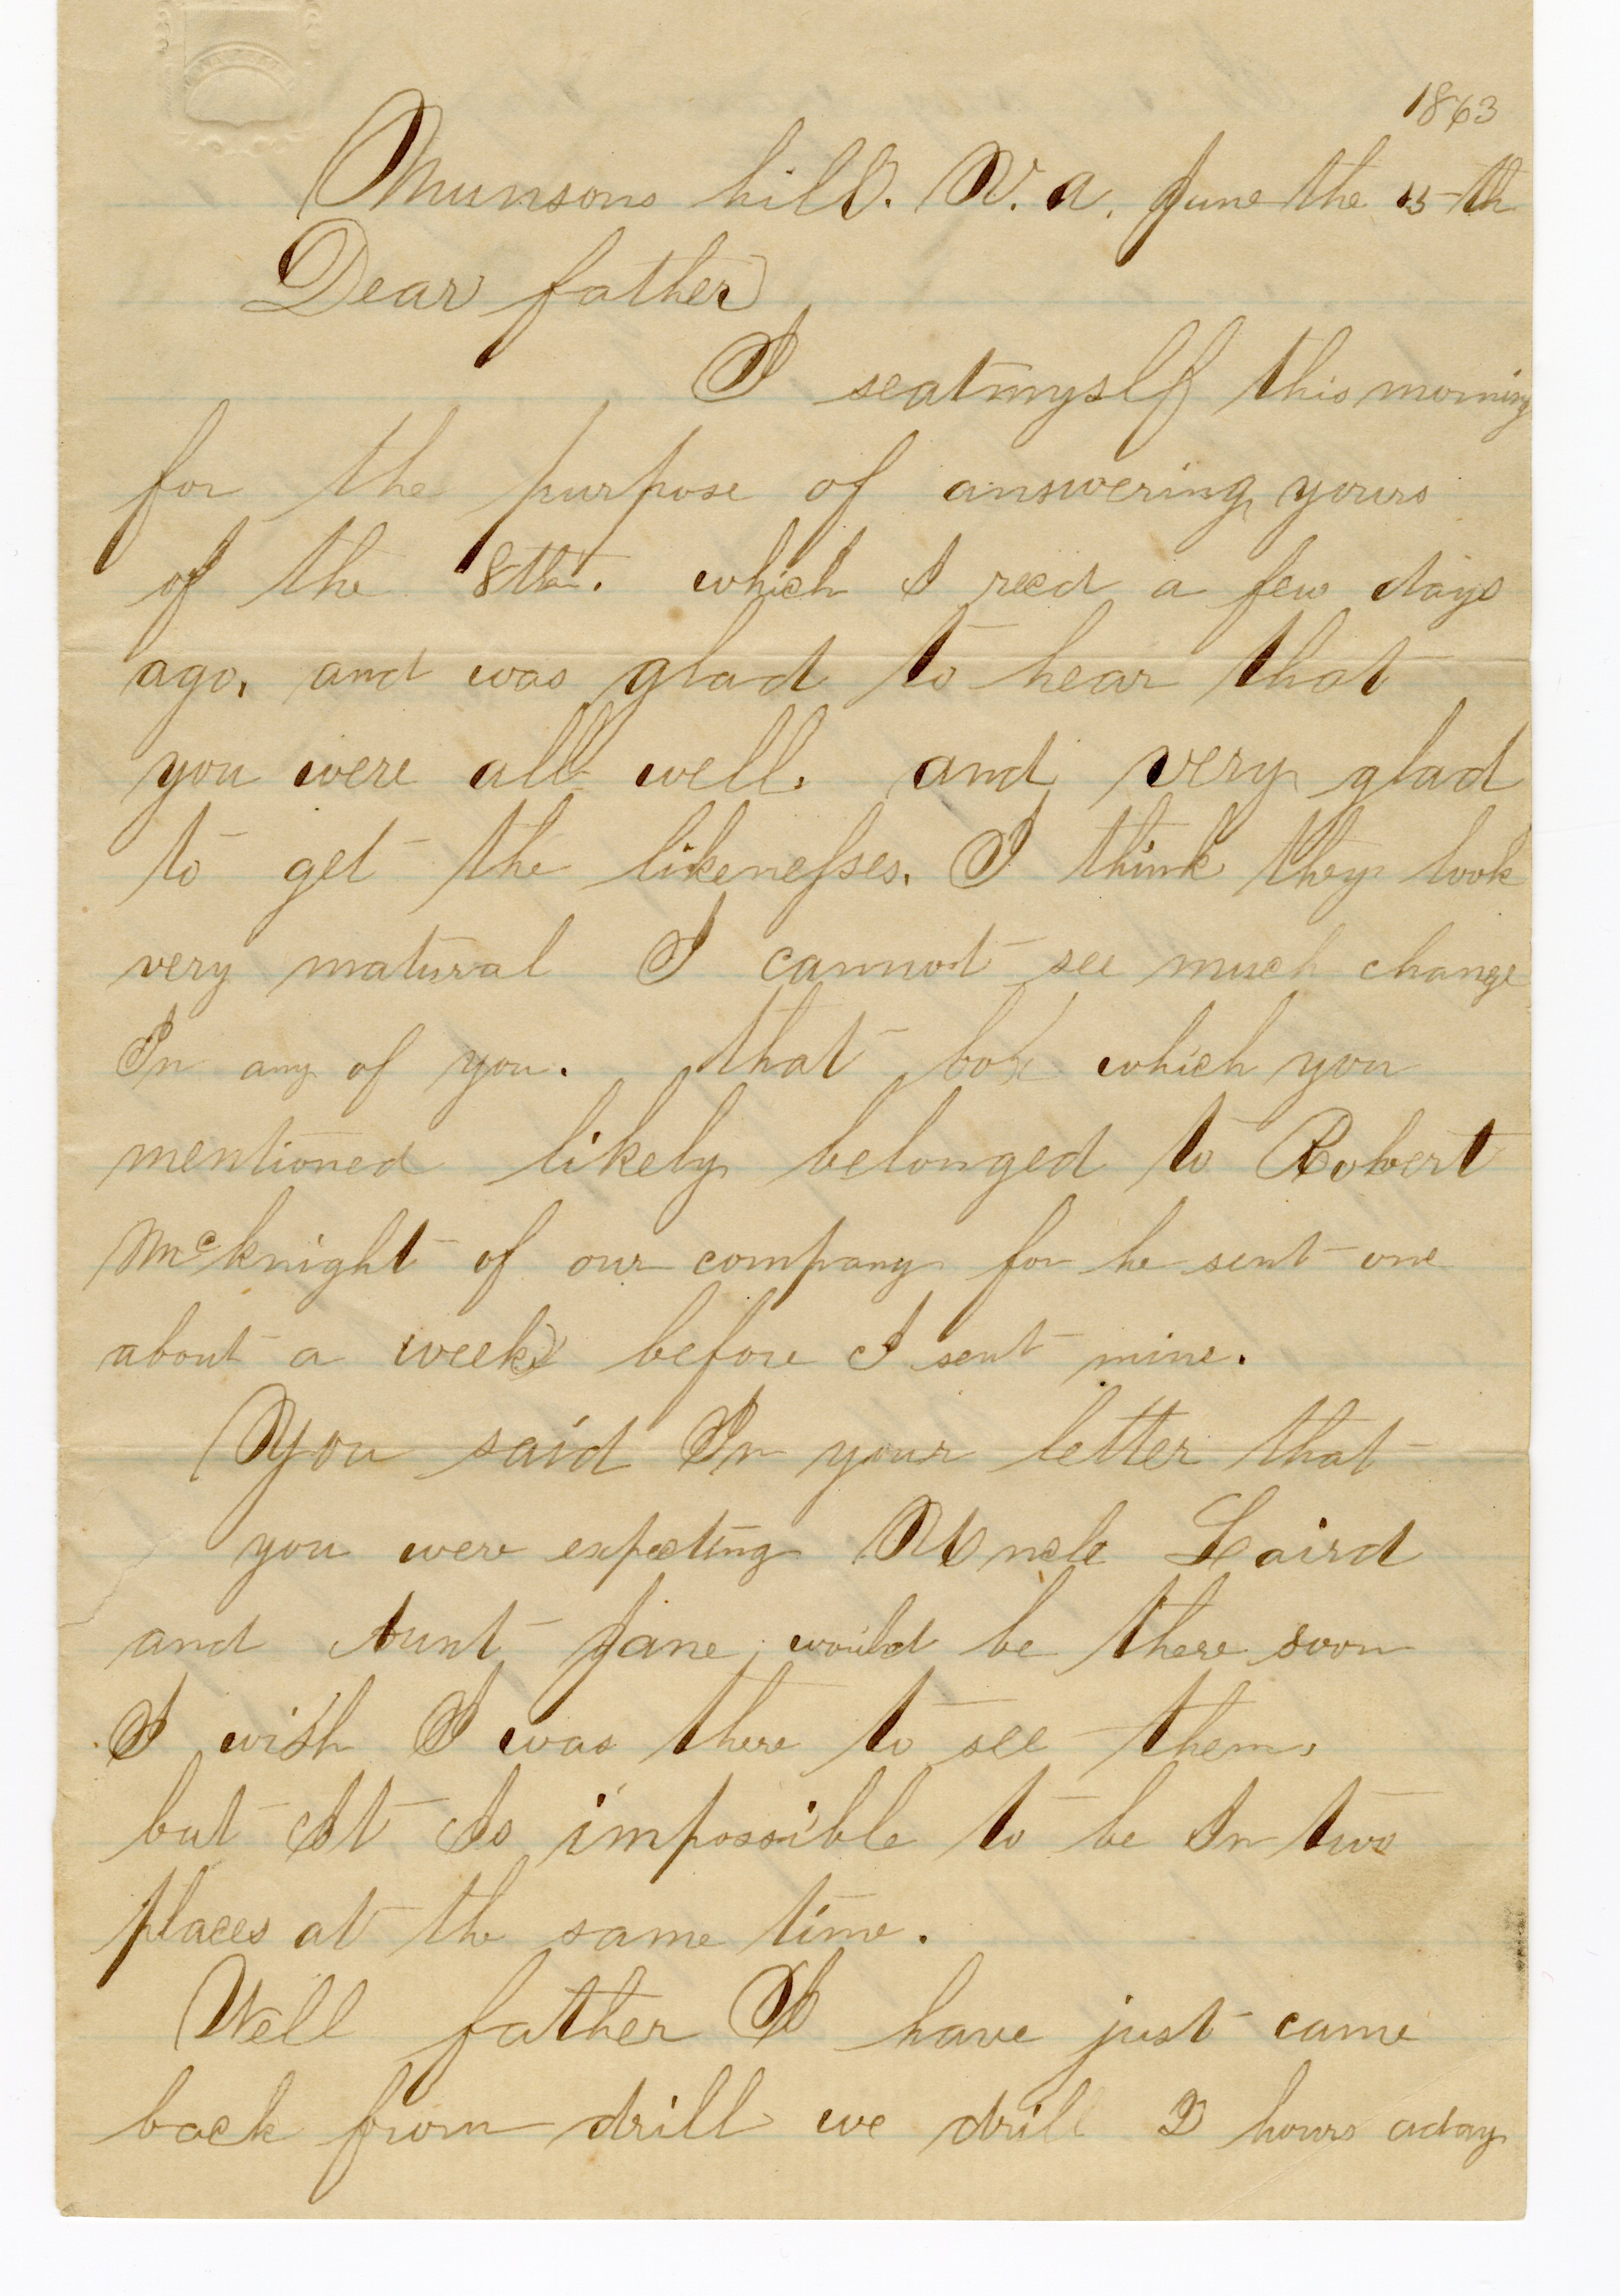 1863
Munsons hill. V. a. June the 15th
Dear father
I seat myslf this morning
for the purpose of answering yours
of the 8th. which I recd a few days
ago, and was glad to hear that
you were all well. and very glad
to get the likenesses. I think they look
very matural I cannot see much change
In any of you. that box which you
mentioned likely belonged to Robert
McKnight of our company for he sent one
about a week before I sent mine.
You said In your letter that
you were expecting Uncle Laird
and Aunt Jane would be there soon
I wish I was there to see them,
but It Is impossible to be In two
places at the same time.
Well father I have just came
back from drill we drill 2 hours aday